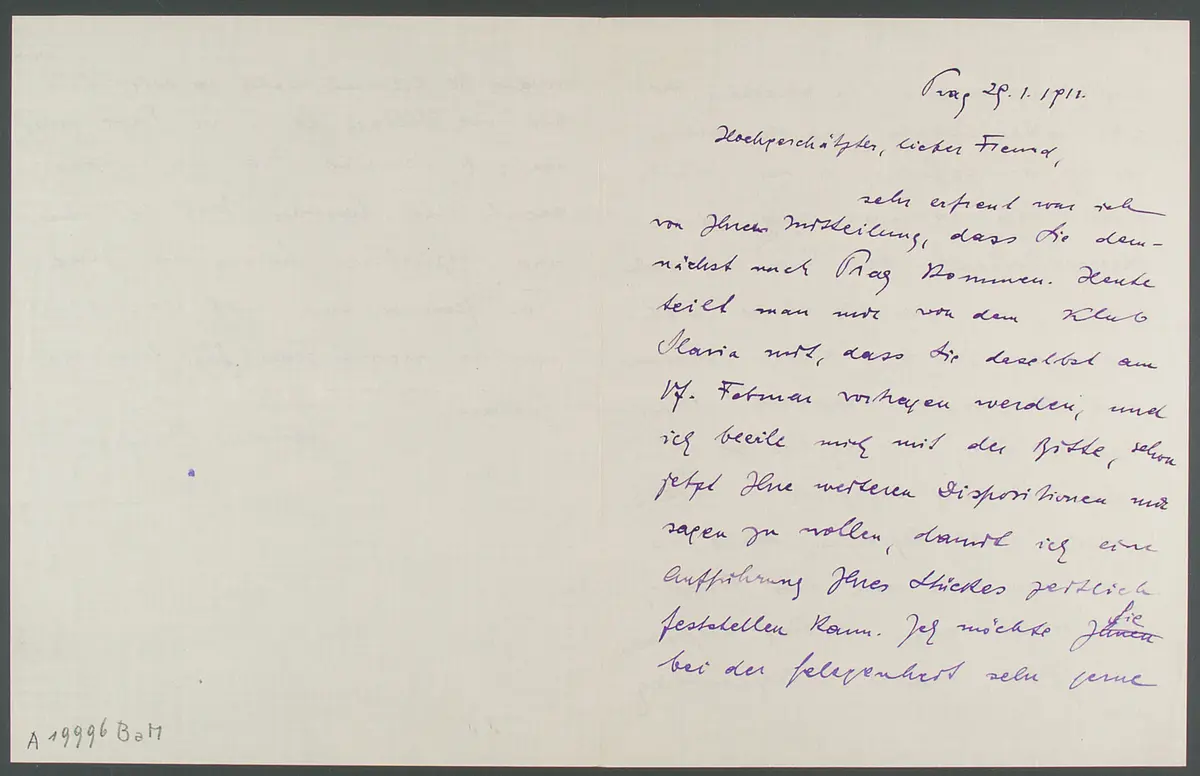 Prag 29. 1. 1911.
Hochgeschätzter, lieber Freund,
sehr erfreut war ich
von Ihrer Mitteilung, dass Sie dem-
nächst nach Prag kommen. Heute
teilt man mir von dem Klub
Slavia mit, dass Sie daselbst am
17. Februar vortragen werden, und
ich beeile mich mit der Bitte, schon
jetzt Ihre weiteren Dispositionen mir
sagen zu wollen, damit ich eine
Aufführung Ihres Stückes zeitlich
feststellen kann. Ich möchte Ihnen Sie
bei der Gelegenheit sehr gerne
A 19996 BaM